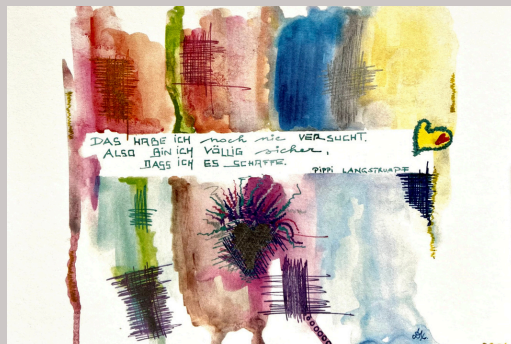 DAS HABE ICH noch nie VERSUCHT.
ALSO BIN ICH VÖLLIG sicher,
DASS ICH ES SCHAFFE.
PIPPI LANGSTRUMPF